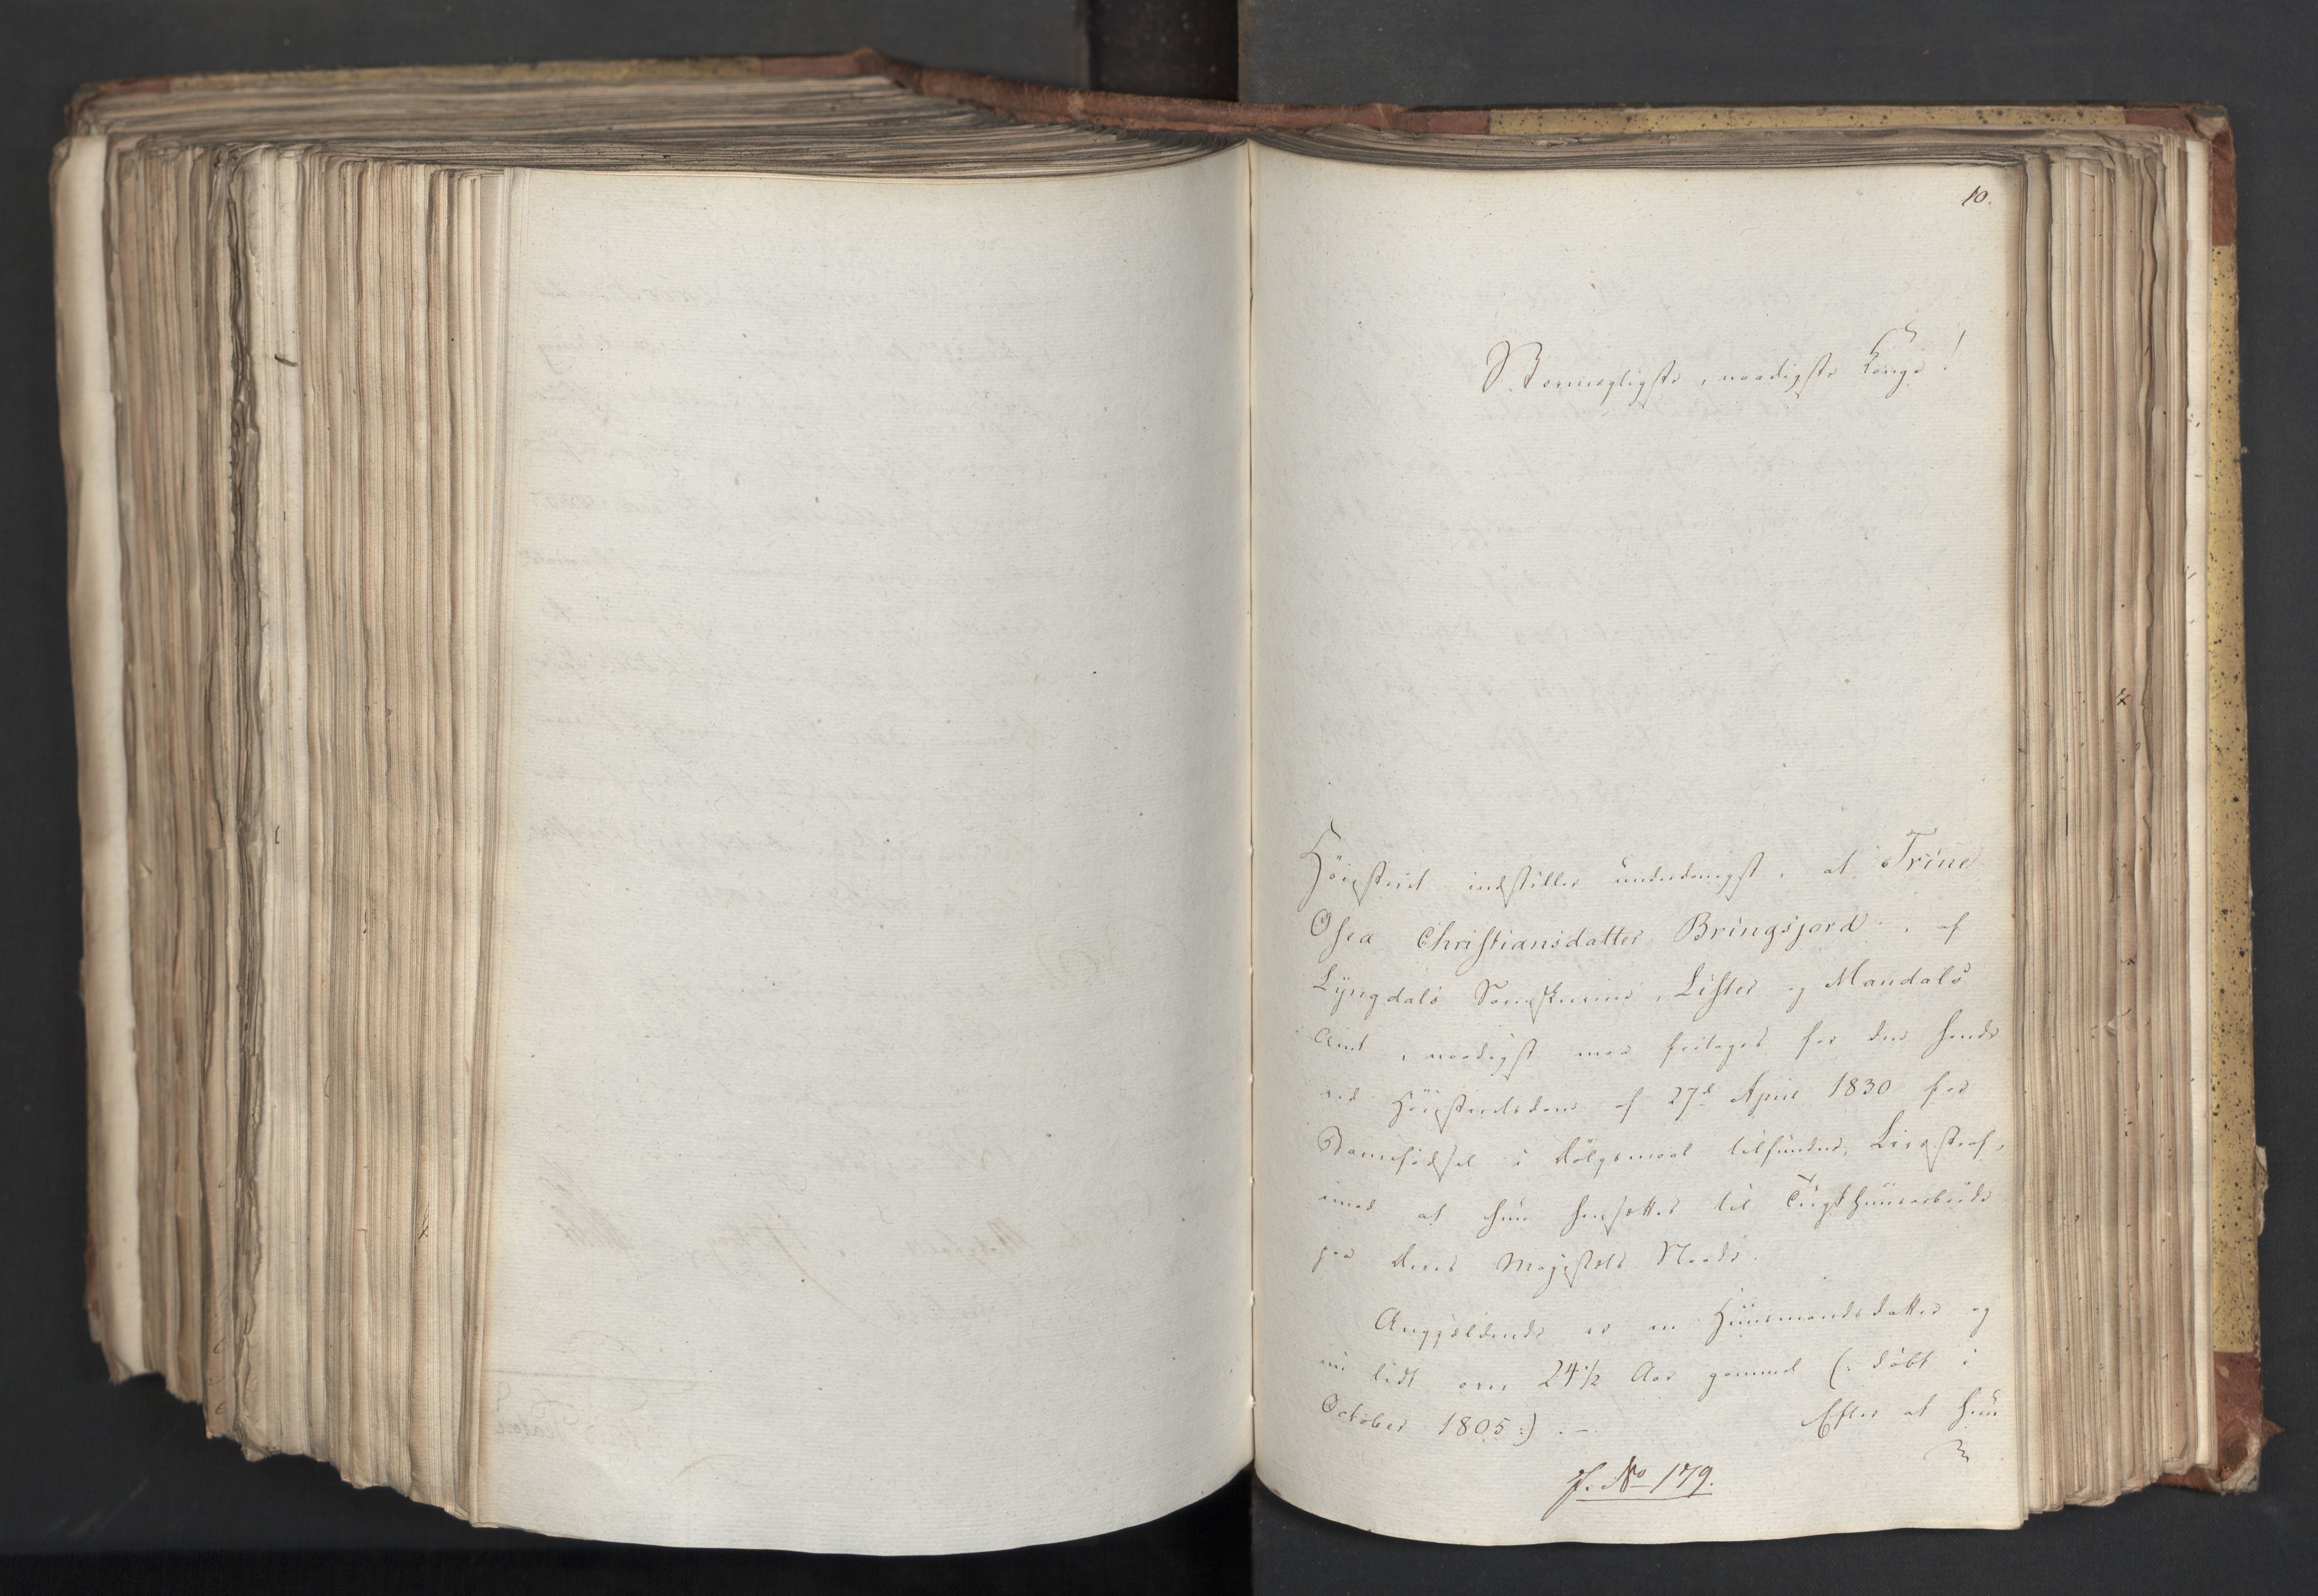 10.
Stormægtigste, naadigste Konge!
Höiesteret indstiller underdanigst, at Trine
Osea Christiansdatter Bringsjord, af
Lyngdals Sorenskriverie, Lister og Mandals
Amt, naadigst maa fritages for den hende
ved Höiesteretsdom af 27de April 1830 for
Barnefödsel i Dölgsmaal tilfundne Livsstraf,
imod at hun hensættes til Tugthuusarbeide
paa Deres Majestæts Naade.
Angjældende er en Huusmandsdatter og
nu lidt over 24 1/2 Aar gammel (: döbt i
October 1805:) . —
Efter at hun
J. No 179.